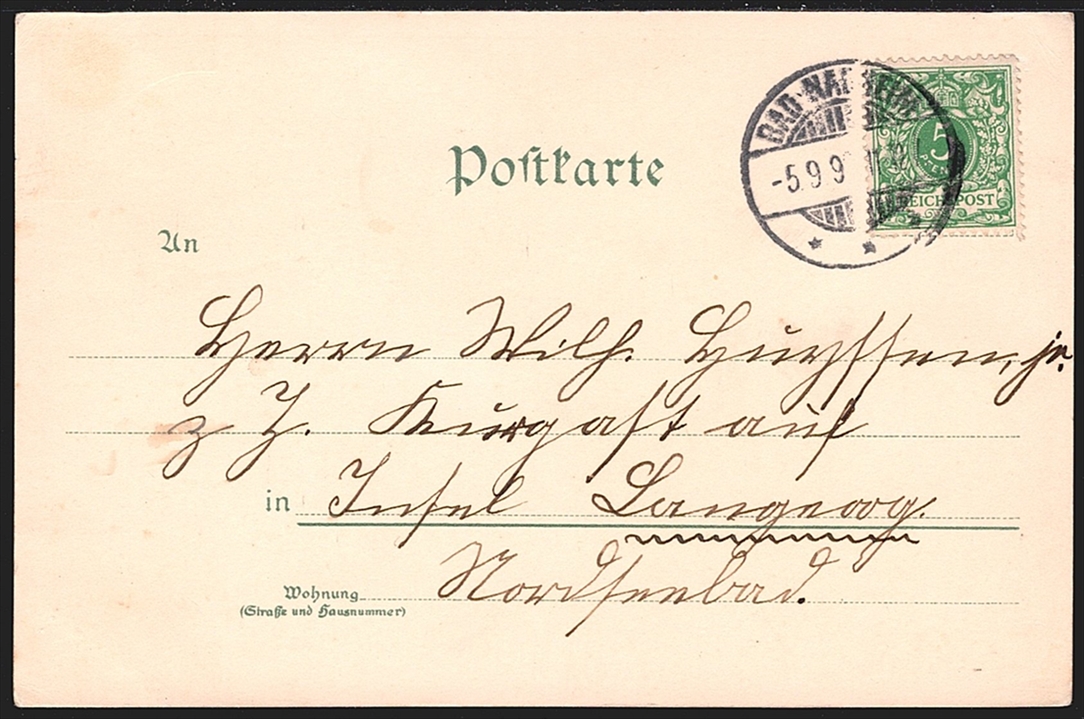 Postkarte
BAD-NAUHEIM
-5.9.9
5
REICHSPOST
An
Herrn Wilh. Huyssen, jr.
z Z. Kurgast auf
in Insel Langeoog.
Nordseebad.
Wohnung
(Straße und Hausnummer)